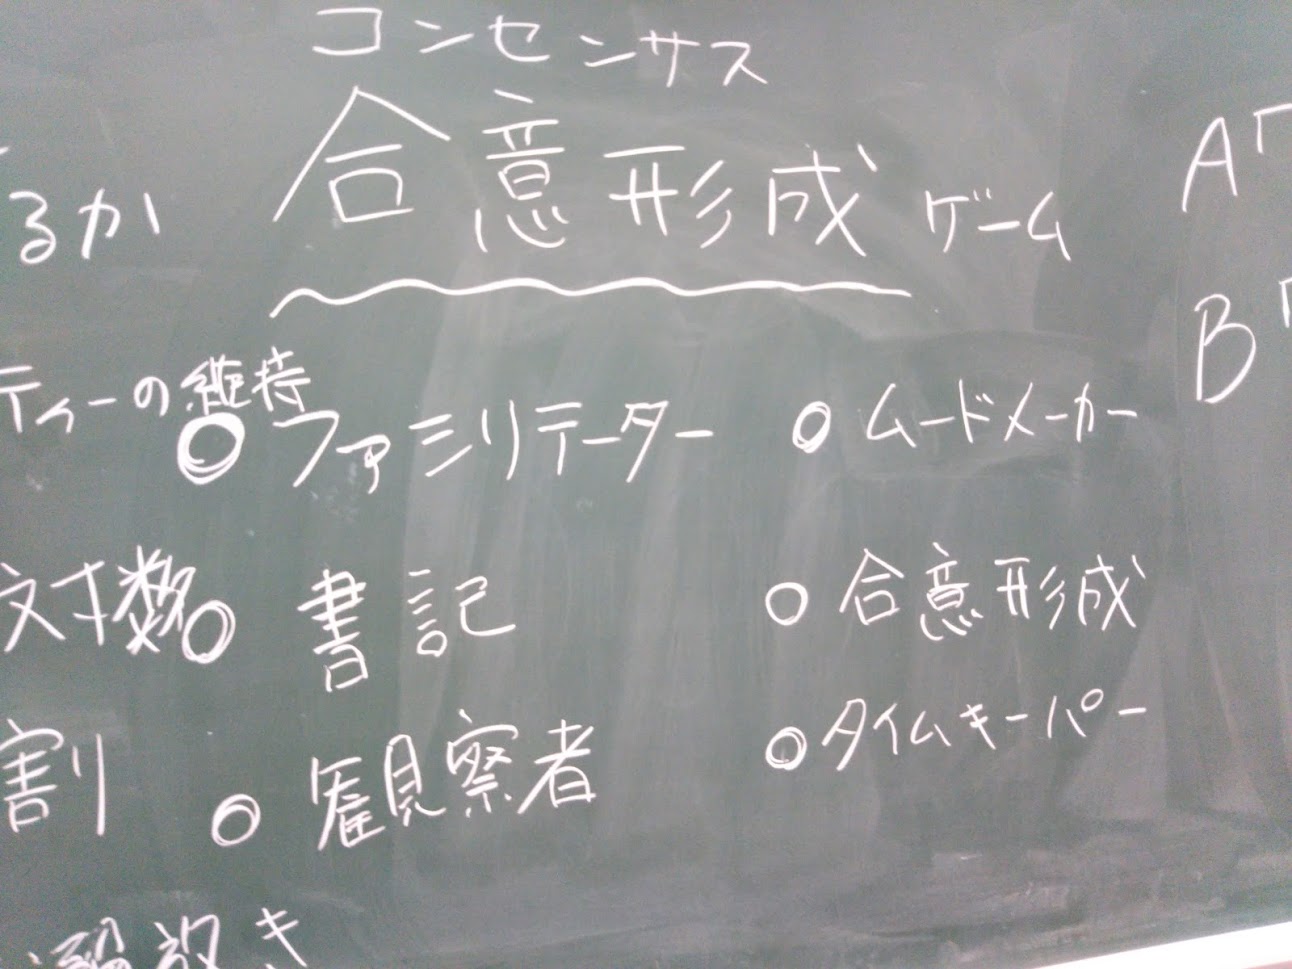 コンセンサス
合意形成 ゲーム
るか
ティーの維持
◎ ファシリテーター
◎ ムードメーカー
対数
○ 書記
○ 合意形成
割
○ 観察者
◎ タイムキーパー
放き
A「
B「